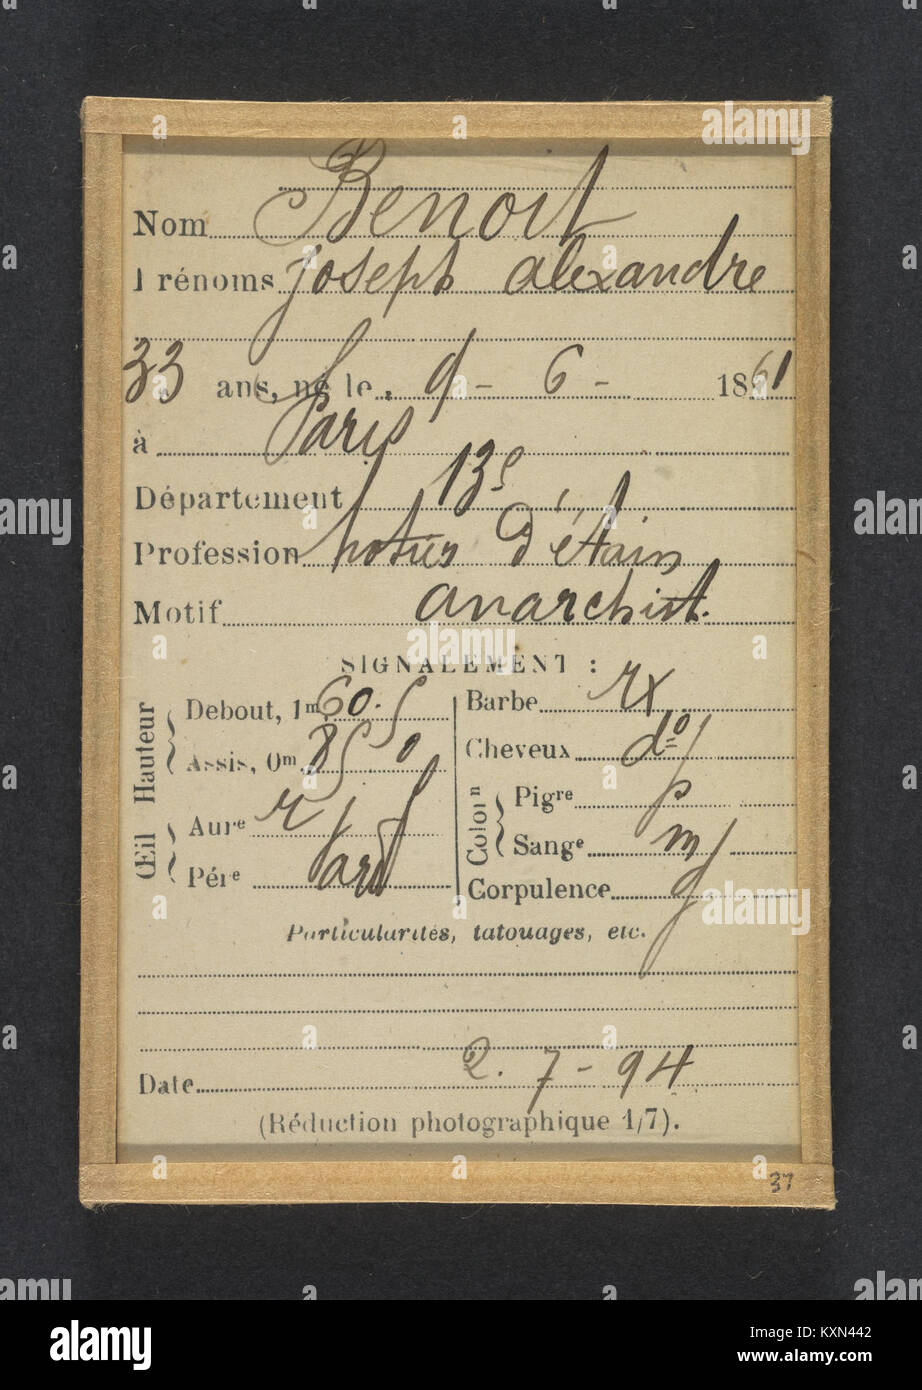 Nom Benoit
Prénoms Joseph alexandre
33 ans, né le 9 - 6 - 1861
à Paris
Département 13e
Profession potier d'étain
Motif anarchist.
SIGNALEMENT :
Hauteur
Debout, 1m 60.5
Assis, 0m 85 0
Œil
Aure r
Pére
Barbe rx
Cheveux do
Colorn
Pigre p
Sange m
Corpulence g
Particularités, tatouages, etc.
Date 2. 7 - 94
(Réduction photographique 1/7).
37
alamy
Image ID: KXN442
www.alamy.com